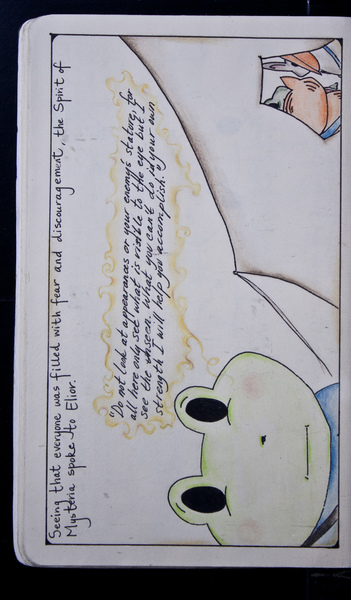 Seeing that everyone was filled with fear and discouragement, the Spirit of
Mysteria spoke to Elior.
"Do not look at appearances or your enemy's stature, for
all here only see what is visible to the eye but I
see the unseen. What you can't do in your own
strength I will help you accomplish."